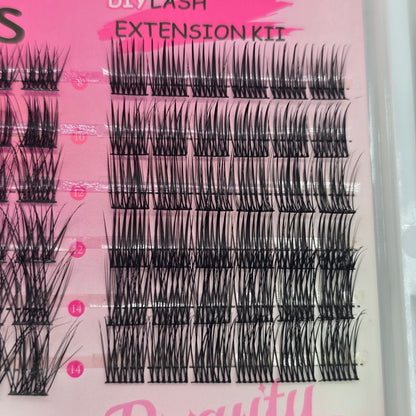 S
DIY LASH
EXTENSION KIT
12
12
14
14
Beauty